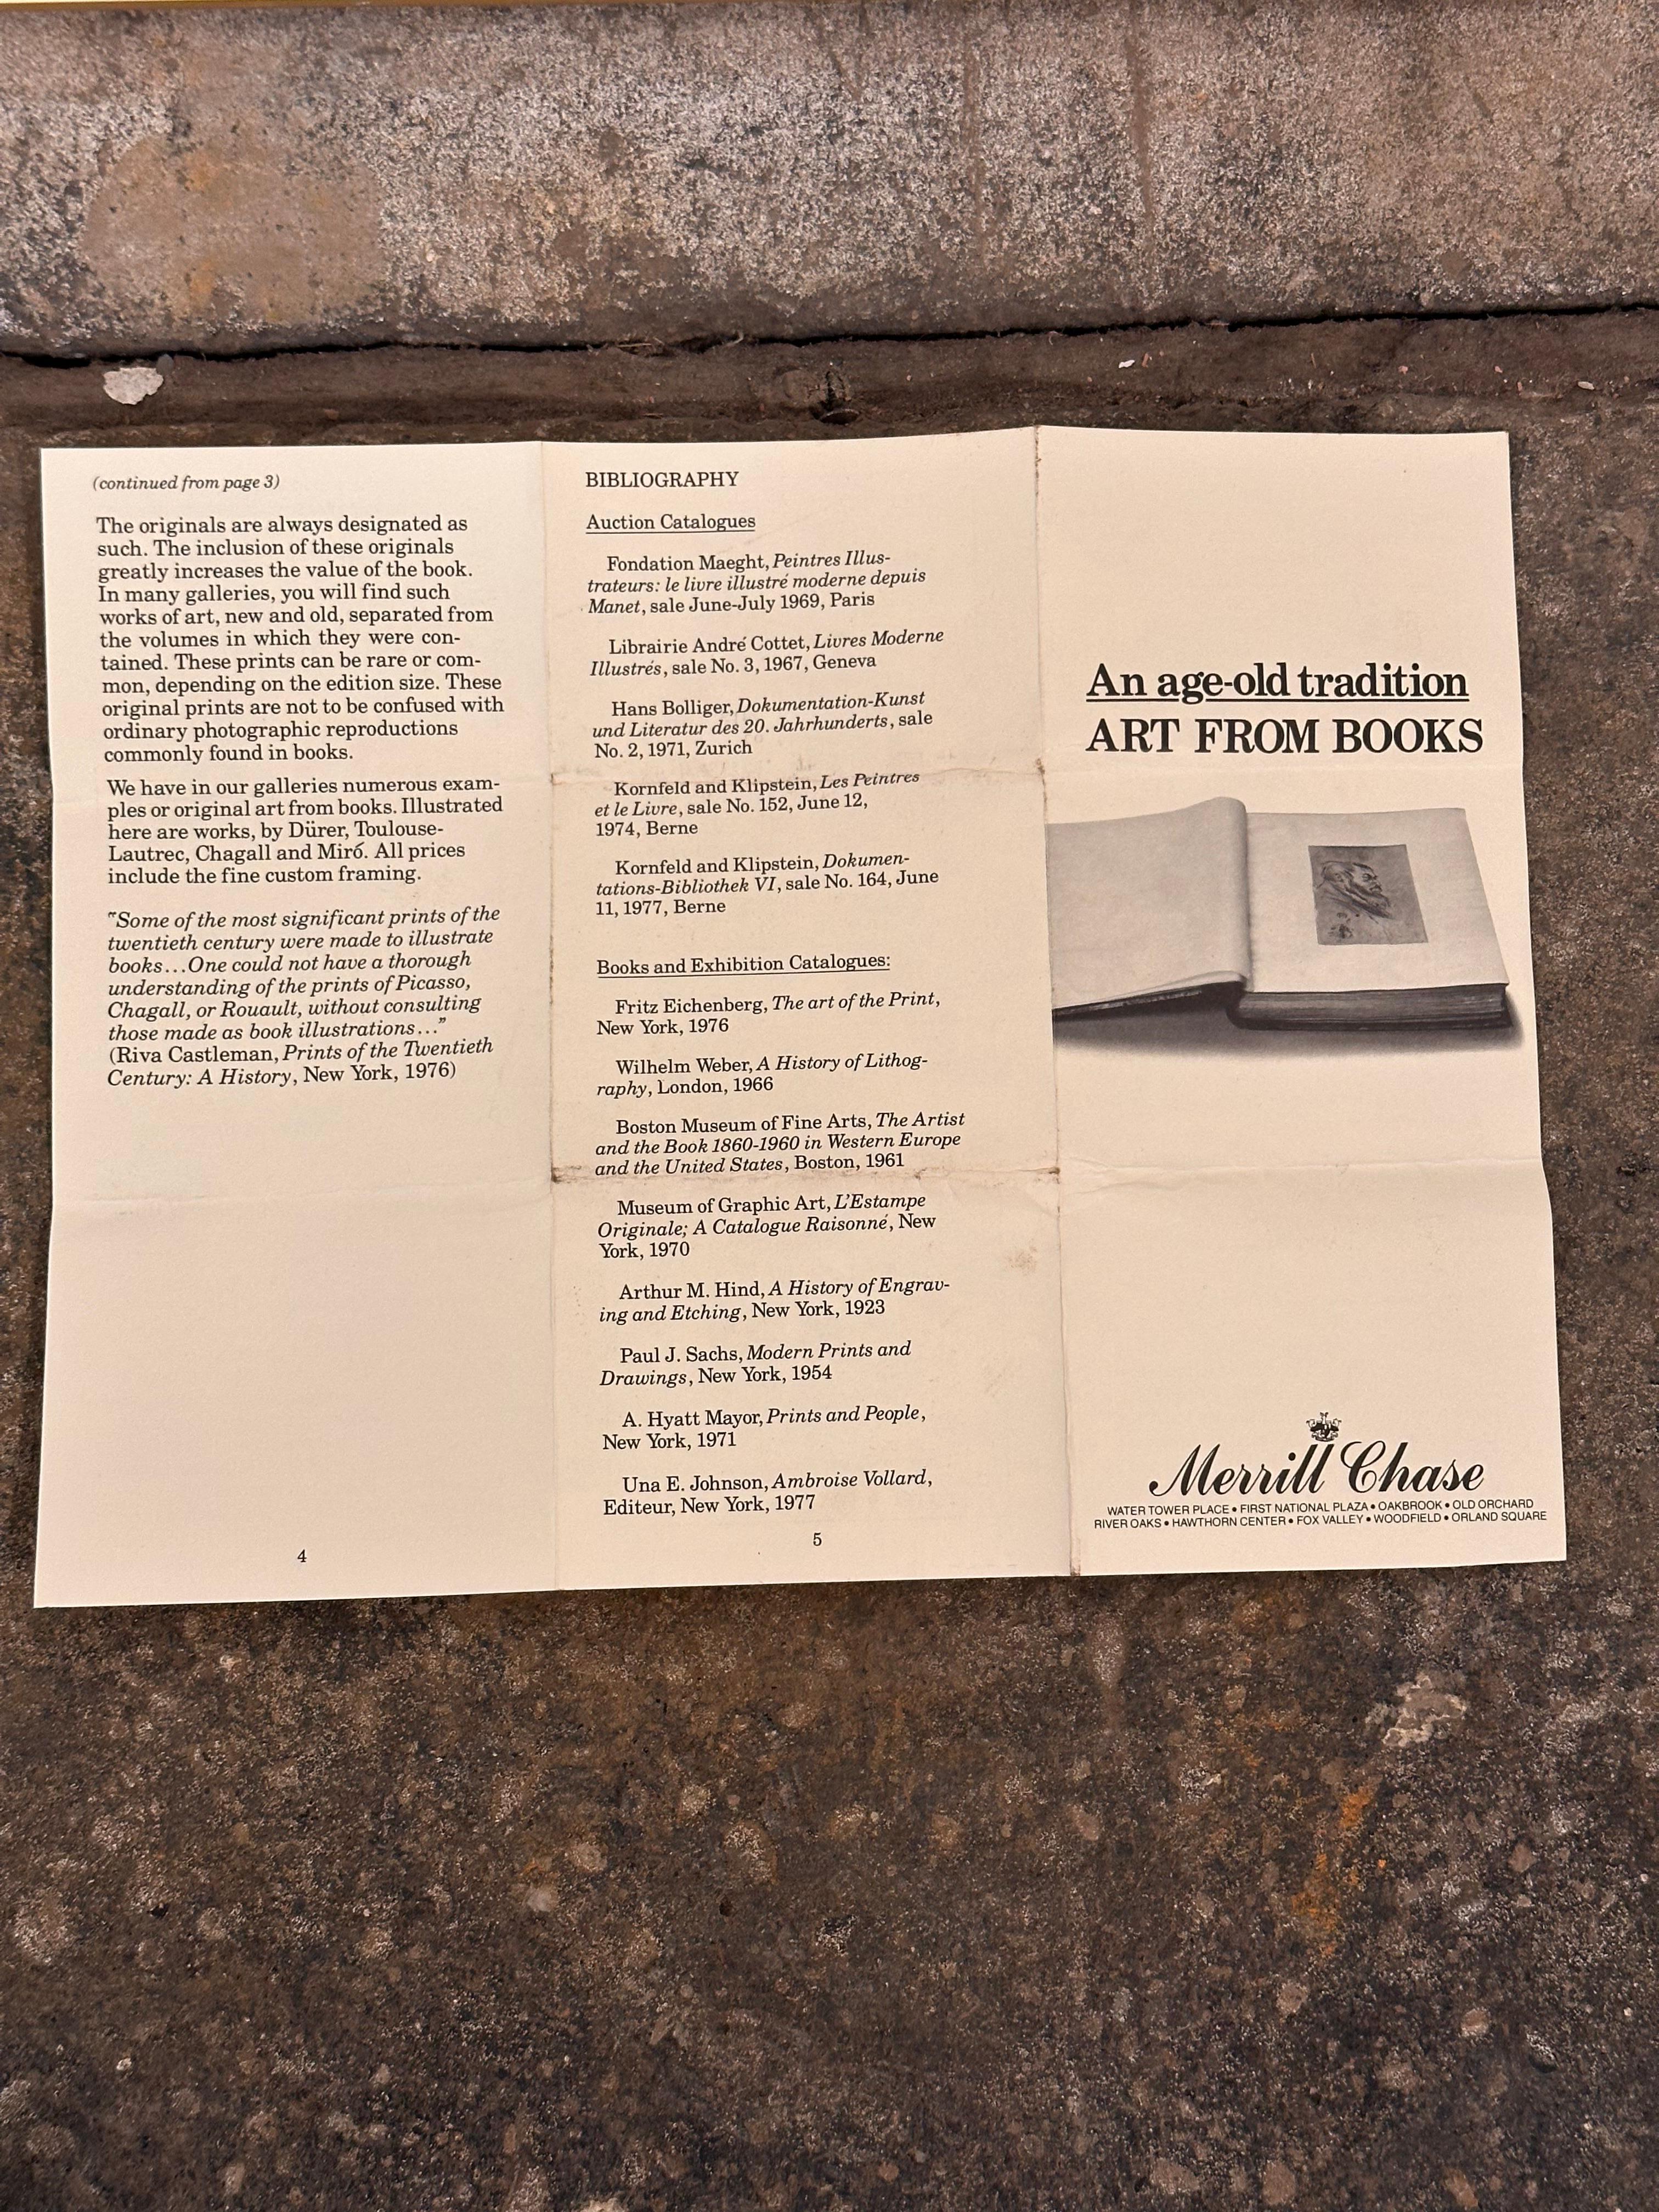 (continued from page 3)
The originals are always designated as
such. The inclusion of these originals
greatly increases the value of the book.
In many galleries, you will find such
works of art, new and old, separated from
the volumes in which they were con-
tained. These prints can be rare or com-
mon, depending on the edition size. These
original prints are not to be confused with
ordinary photographic reproductions
commonly found in books.
We have in our galleries numerous exam-
ples or original art from books. Illustrated
here are works, by Dürer, Toulouse-
Lautrec, Chagall and Miró. All prices
include the fine custom framing.
"Some of the most significant prints of the
twentieth century were made to illustrate
books...One could not have a thorough
understanding of the prints of Picasso,
Chagall, or Rouault, without consulting
those made as book illustrations..."
(Riva Castleman, Prints of the Twentieth
Century: A History, New York, 1976)
4
BIBLIOGRAPHY
Auction Catalogues
Fondation Maeght, Peintres Illus-
trateurs: le livre illustré moderne depuis
Manet, sale June-July 1969, Paris
Librairie André Cottet, Livres Moderne
Illustrés, sale No. 3, 1967, Geneva
Hans Bolliger, Dokumentation-Kunst
und Literatur des 20. Jahrhunderts, sale
No. 2, 1971, Zurich
Kornfeld and Klipstein, Les Peintres
et le Livre, sale No. 152, June 12,
1974, Berne
Kornfeld and Klipstein, Dokumen-
tations-Bibliothek VI, sale No. 164, June
11, 1977, Berne
Books and Exhibition Catalogues:
Fritz Eichenberg, The art of the Print,
New York, 1976
Wilhelm Weber, A History of Lithog-
raphy, London, 1966
Boston Museum of Fine Arts, The Artist
and the Book 1860-1960 in Western Europe
and the United States, Boston, 1961
Museum of Graphic Art, L'Estampe
Originale; A Catalogue Raisonné, New
York, 1970
Arthur M. Hind, A History of Engrav-
ing and Etching, New York, 1923
Paul J. Sachs, Modern Prints and
Drawings, New York, 1954
A. Hyatt Mayor, Prints and People,
New York, 1971
Una E. Johnson, Ambroise Vollard,
Editeur, New York, 1977
5
An age-old tradition
ART FROM BOOKS
Merrill Chase
WATER TOWER PLACE • FIRST NATIONAL PLAZA • OAKBROOK • OLD ORCHARD
RIVER OAKS • HAWTHORN CENTER • FOX VALLEY • WOODFIELD • ORLAND SQUARE